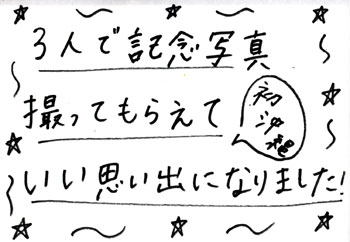 3人で記念写真
撮ってもらえて
いい思い出になりました!